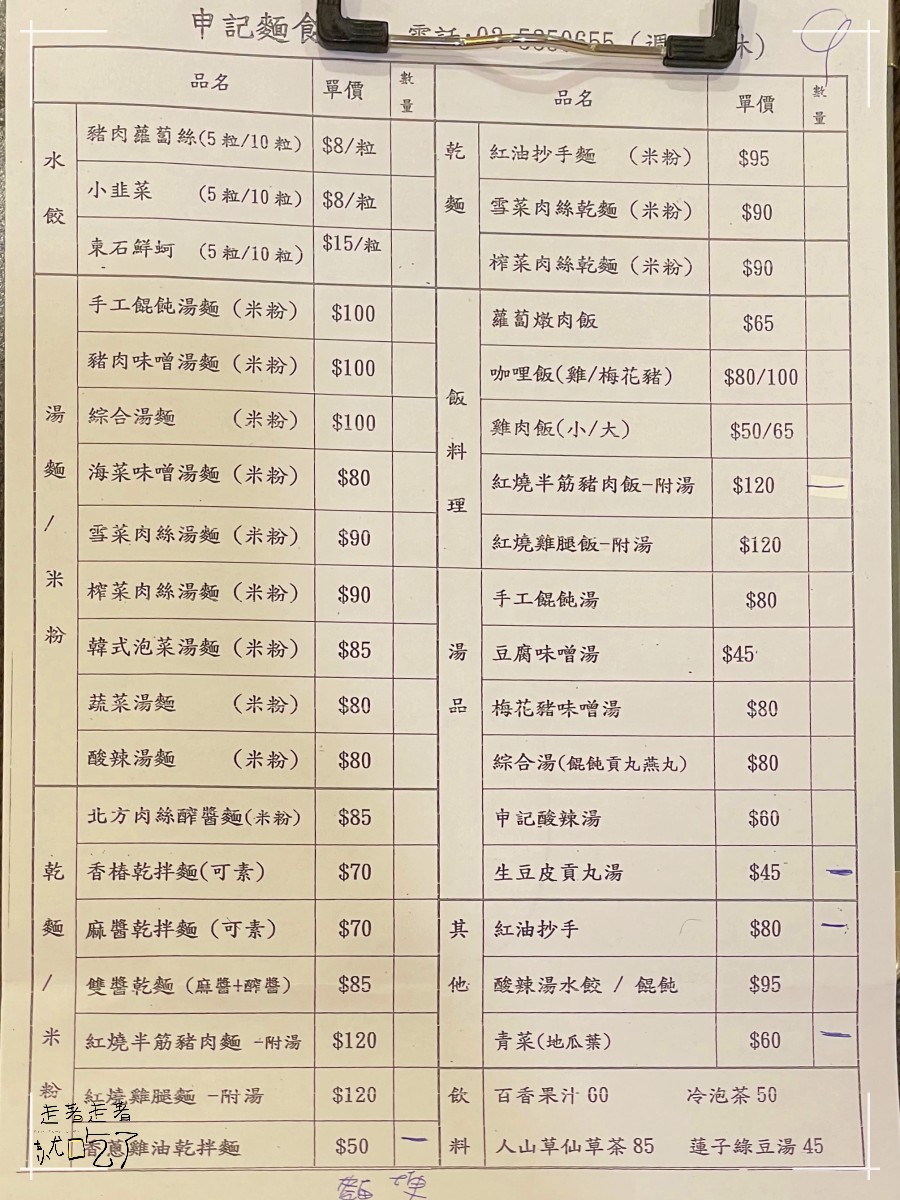 申記麵食
電話:03-5350655 (週 休)
品名 單價 數量
水餃
豬肉蘿蔔絲(5粒/10粒) $8/粒
小韭菜 (5粒/10粒) $8/粒
東石鮮蚵 (5粒/10粒) $15/粒
湯麵/米粉
手工餛飩湯麵 (米粉) $100
豬肉味噌湯麵 (米粉) $100
綜合湯麵 (米粉) $100
海菜味噌湯麵 (米粉) $80
雪菜肉絲湯麵 (米粉) $90
榨菜肉絲湯麵 (米粉) $90
韓式泡菜湯麵 (米粉) $85
蔬菜湯麵 (米粉) $80
酸辣湯麵 (米粉) $80
乾麵/米粉
北方肉絲醡醬麵(米粉) $85
香椿乾拌麵(可素) $70
麻醬乾拌麵 (可素) $70
雙醬乾麵 (麻醬+醡醬) $85
紅燒半筋豬肉麵 -附湯 $120
紅燒雞腿麵 -附湯 $120
香蔥雞油乾拌麵 $50
品名 單價 數量
乾麵
紅油抄手麵 (米粉) $95
雪菜肉絲乾麵 (米粉) $90
榨菜肉絲乾麵 (米粉) $90
飯料理
蘿蔔燉肉飯 $65
咖哩飯(雞/梅花豬) $80/100
雞肉飯(小/大) $50/65
紅燒半筋豬肉飯-附湯 $120
紅燒雞腿飯-附湯 $120
湯品
手工餛飩湯 $80
豆腐味噌湯 $45
梅花豬味噌湯 $80
綜合湯(餛飩貢丸燕丸) $80
申記酸辣湯 $60
生豆皮貢丸湯 $45
其他
紅油抄手 $80
酸辣湯水餃 / 餛飩 $95
青菜(地瓜葉) $60
飲料
百香果汁 60 冷泡茶 50
人山草仙草茶 85 蓮子綠豆湯 45
走著走著
就吃了